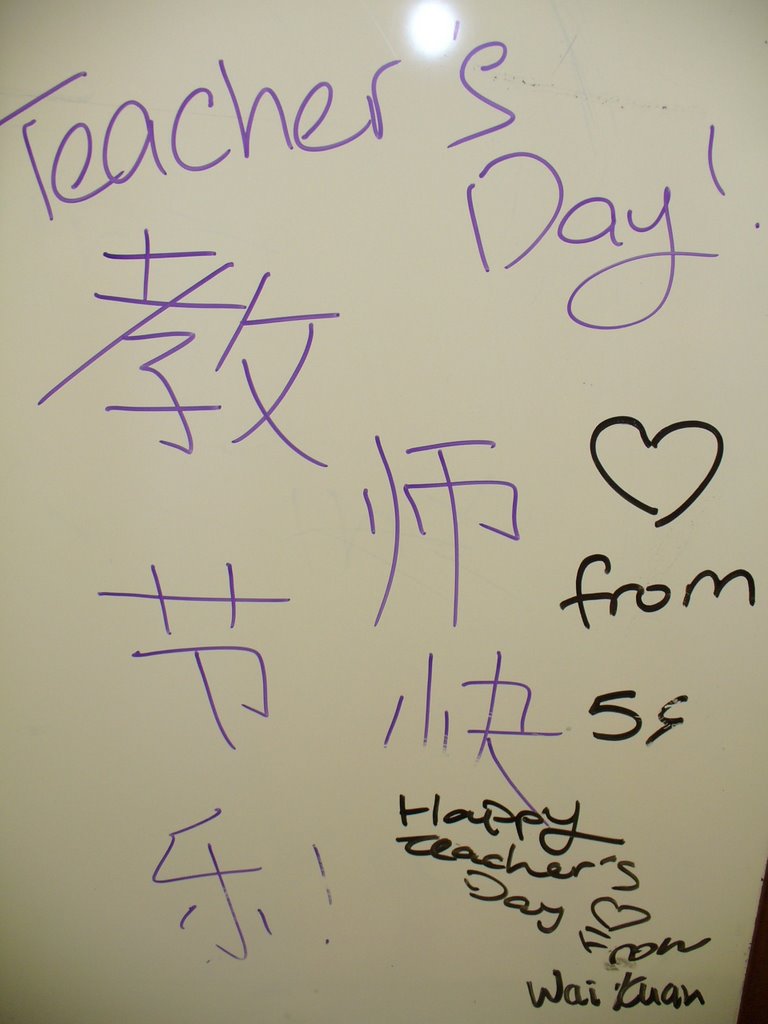 Teacher's
Day!
教
师
节
快
乐!
from
5s
Happy
Teacher's
Day
From
Wai Kuan